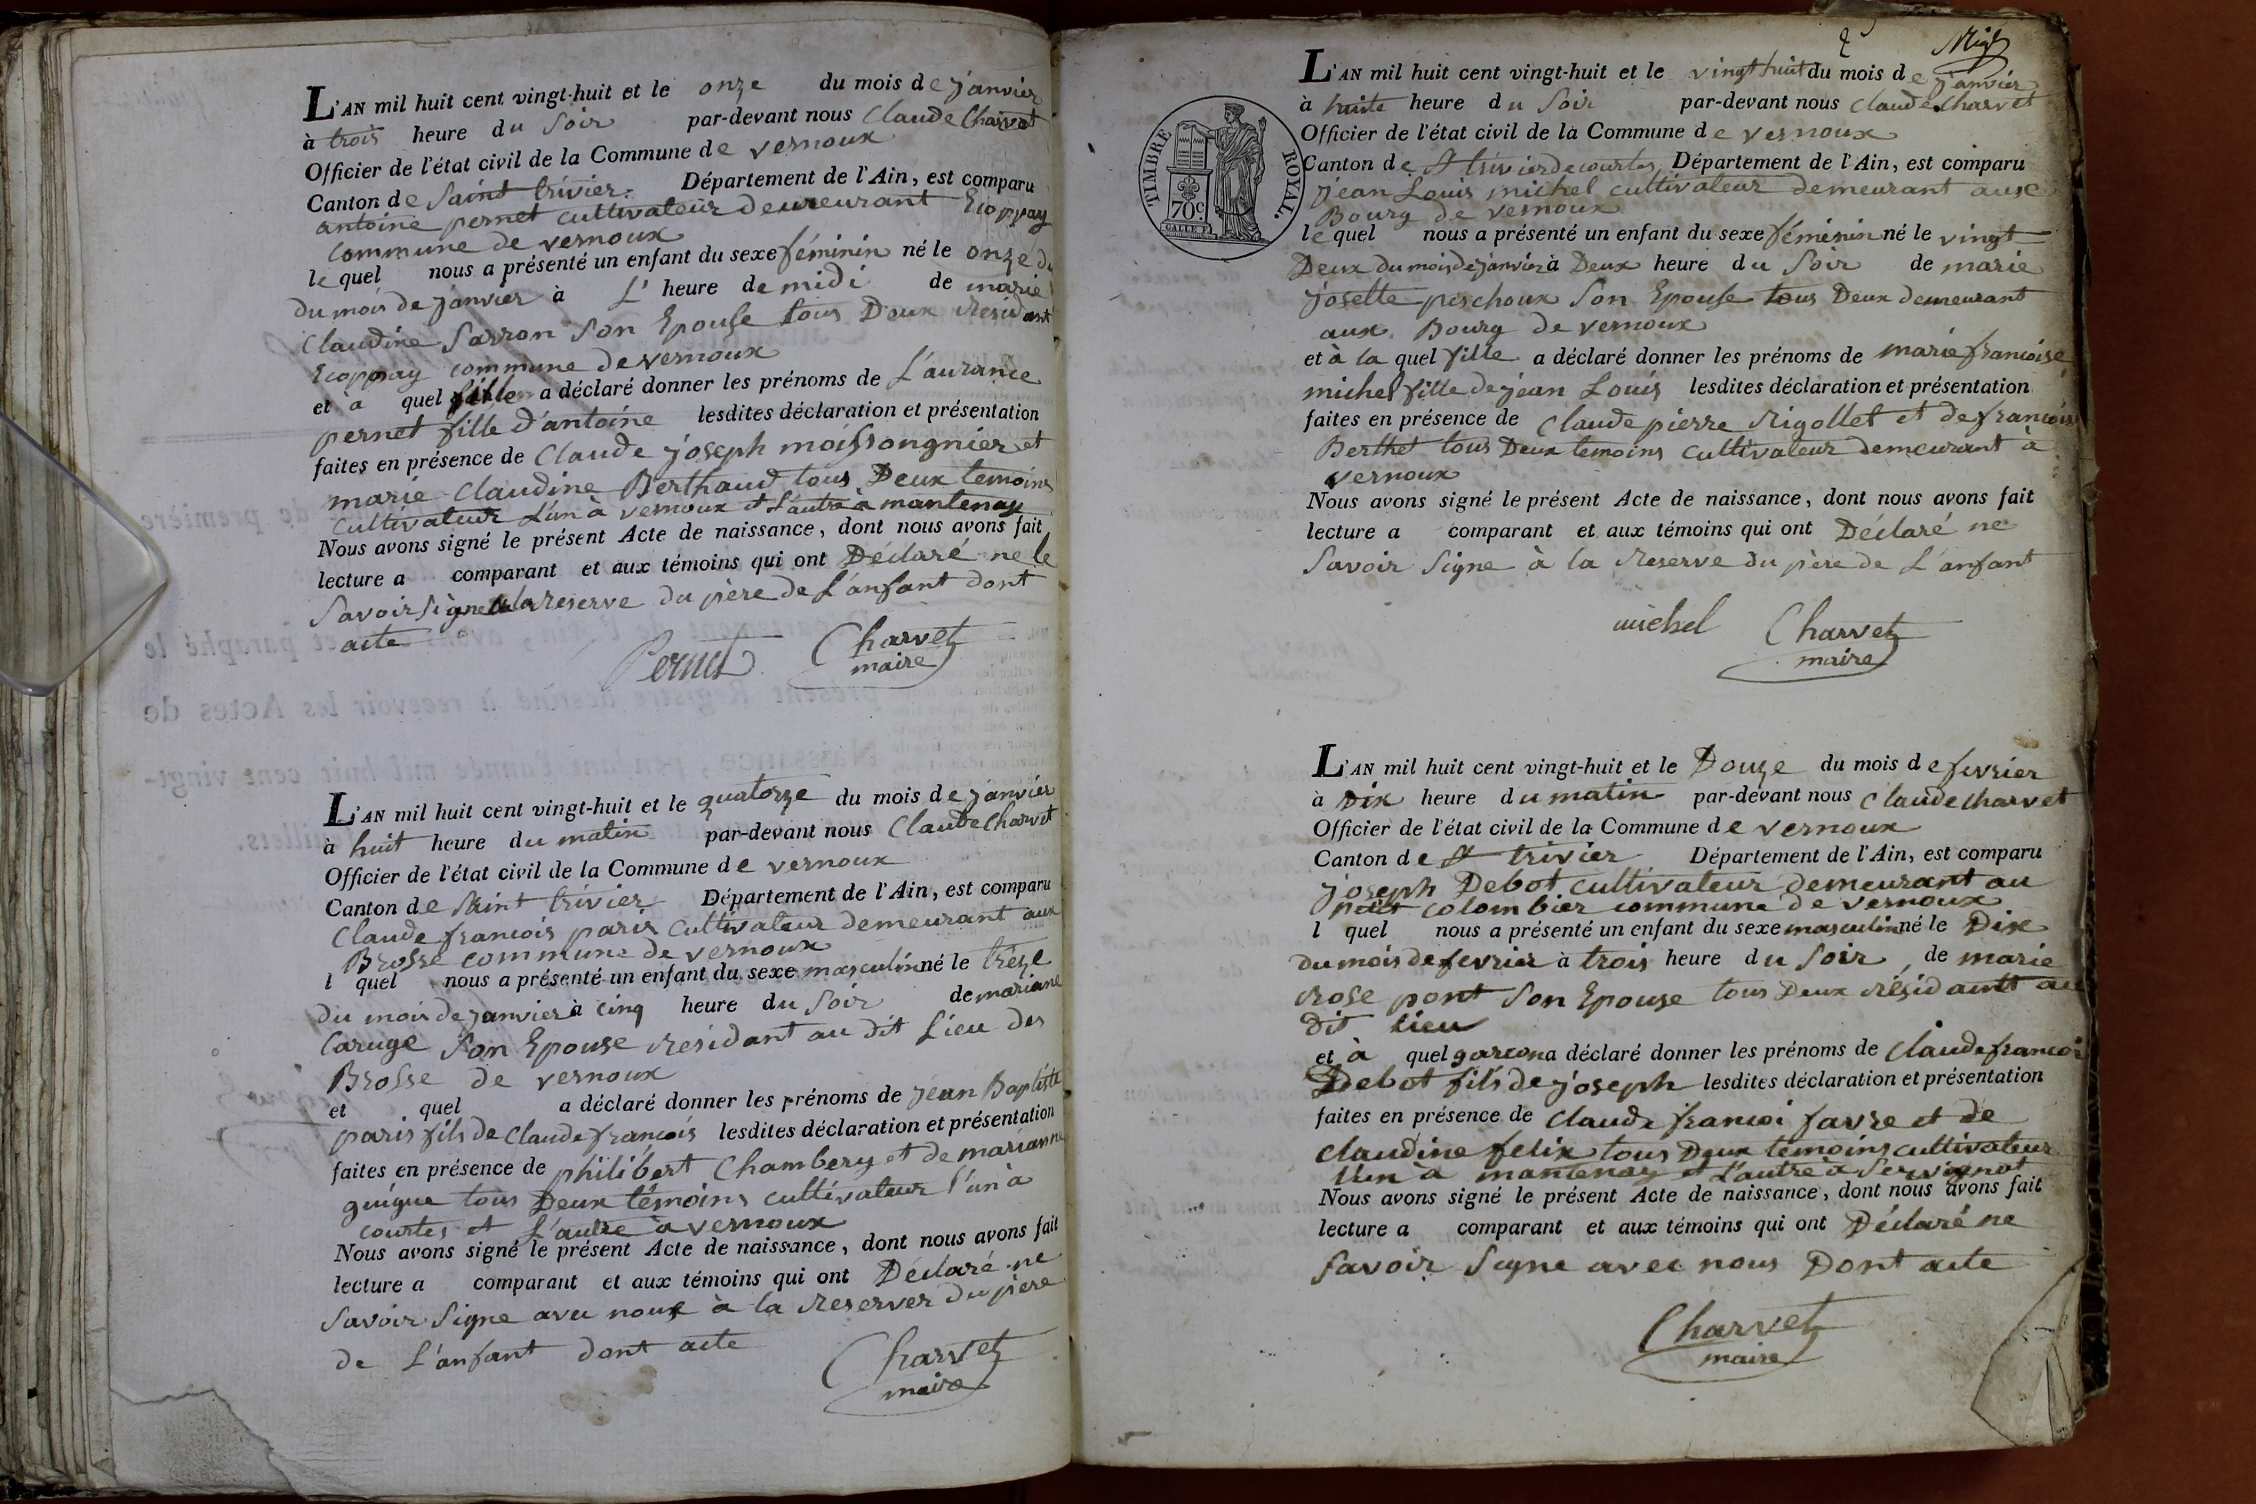 L'AN mil huit cent vingt-huit et le onze du mois de janvier
à trois heure du Soir par-devant nous Claude Charvet
Officier de l'état civil de la Commune de vernoux
Canton de Saint trivier Département de l'Ain, est comparu
antoine pernet cultivateur demeurant Ecoppay
commune de vernoux
le quel nous a présenté un enfant du sexe féminin né le onze du
du mois de janvier à L' heure de midi de marie
Claudine Sarron Son Epouse tous Deux résidant
Ecoppay commune de vernoux
et à quel fille a déclaré donner les prénoms de L'aurance
pernet fille d'antoine lesdites déclaration et présentation
faites en présence de Claude joseph moissongnier et
marie Claudine Berthaud tous Deux temoins
cultivateur L'un à vernoux et L'autre à mantenay
Nous avons signé le présent Acte de naissance, dont nous avons fait
lecture a comparant et aux témoins qui ont Déclaré ne le
Savoir signe à la reserve du père de L'anfant dont
acte
Pernet Charvet
maire
L'AN mil huit cent vingt-huit et le quatorze du mois de janvier
à huit heure du matin par-devant nous Claude Charvet
Officier de l'état civil de la Commune de vernoux
Canton de Saint trivier Département de l'Ain, est comparu
Claude francois paris cultivateur demeurant aux
Brosse commune de vernoux
l quel nous a présenté un enfant du sexe masculin né le trèze
du mois de janvier à cinq heure du Soir de mariane
Caruge Son Epouse résidant au dit Lieu des
Brosse de vernoux
et quel a déclaré donner les prénoms de jean Baptiste
paris fils de Claude francois lesdites déclaration et présentation
faites en présence de philibert Chambery et de marianne
guigue tous Deux témoins cultivateur l'un à
courtes et L'autre à vernoux
Nous avons signé le présent Acte de naissance, dont nous avons fait
lecture a comparant et aux témoins qui ont Déclaré ne
Savoir Signe avec nous à la reserver du père
de L'anfant dont acte
Charvet
maire
2
L'AN mil huit cent vingt-huit et le vingt huit du mois de janvier
à huite heure du Soir par-devant nous Claude Charvet
Officier de l'état civil de la Commune de vernoux
Canton de St trivier de courtes Département de l'Ain, est comparu
TIMBRE ROYAL.
70c.
jean Louis michel cultivateur demeurant aux
Bourg de vernoux
le quel nous a présenté un enfant du sexe féminin né le vingt
Deux du mois de janvier à Deux heure du Soir de marie
josette peschoux Son Epouse tous Deux demeurant
aux Bourg de vernoux
et à la quel fille a déclaré donner les prénoms de marie francoise
michel fille de jean Louis lesdites déclaration et présentation
faites en présence de Claude pierre Rigollet et de francois
Berthet tous Deux temoins cultivateur demeurant à
vernoux
Nous avons signé le présent Acte de naissance, dont nous avons fait
lecture a comparant et aux témoins qui ont Déclaré ne
Savoir Signe à la reserve du père de L'anfant
michel Charvet
maire
L'AN mil huit cent vingt-huit et le Douze du mois de fevrier
à Dix heure du matin par-devant nous Claude Charvet
Officier de l'état civil de la Commune de vernoux
Canton de St trivier Département de l'Ain, est comparu
joseph Debot cultivateur demeurant au
petit colombier commune de vernoux
l quel nous a présenté un enfant du sexe masculin né le Dix
du mois de fevrier à trois heure du Soir, de marie
rose pont Son Epouse tous Deux résidantt au
Dit Lieu
et à quel garcon a déclaré donner les prénoms de Claude francoi
Debot fils de joseph lesdites déclaration et présentation
faites en présence de Claude francoi favre et de
Claudine felix tous Deux témoins cultivateur
L'un à mantenay et L'autre à Servignat
Nous avons signé le présent Acte de naissance, dont nous avons fait
lecture a comparant et aux témoins qui ont Déclaré ne
Savoir Signe avec nous Dont acte
Charvet
maire